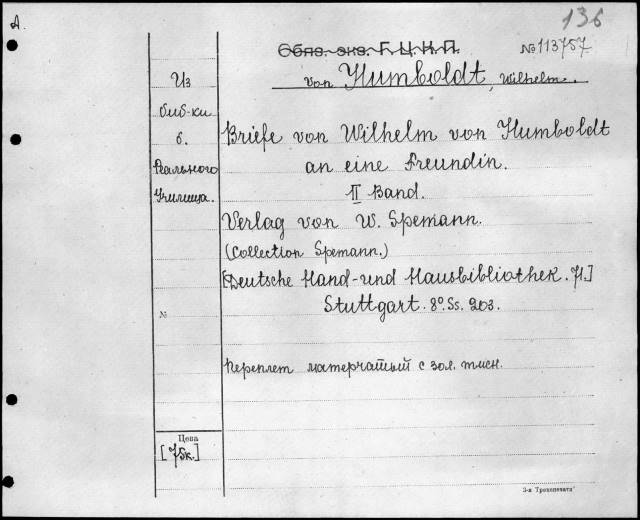 А.
136
Обяз. экз. Г.Ц.К.П.
№ 113757
von Humboldt, Wilhelm.
Из
биб-ки
б.
Реального
Училища.
Briefe von Wilhelm von Humboldt
an eine Freundin.
II Band.
Verlag von W. Spemann.
(Collection Spemann.)
[Deutsche Hand- und Hausbibliothek. 71.]
Stuttgart. 8º. Ss. 203.
№
Переплет матерчатый с зол. тисн.
Цена
[75к.]
3-я Трохопечати